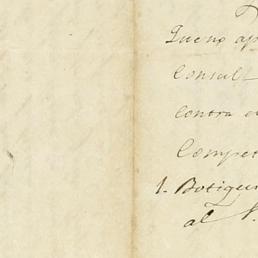 Que no ap
Consul
contra
Compet
1. Botigue
al